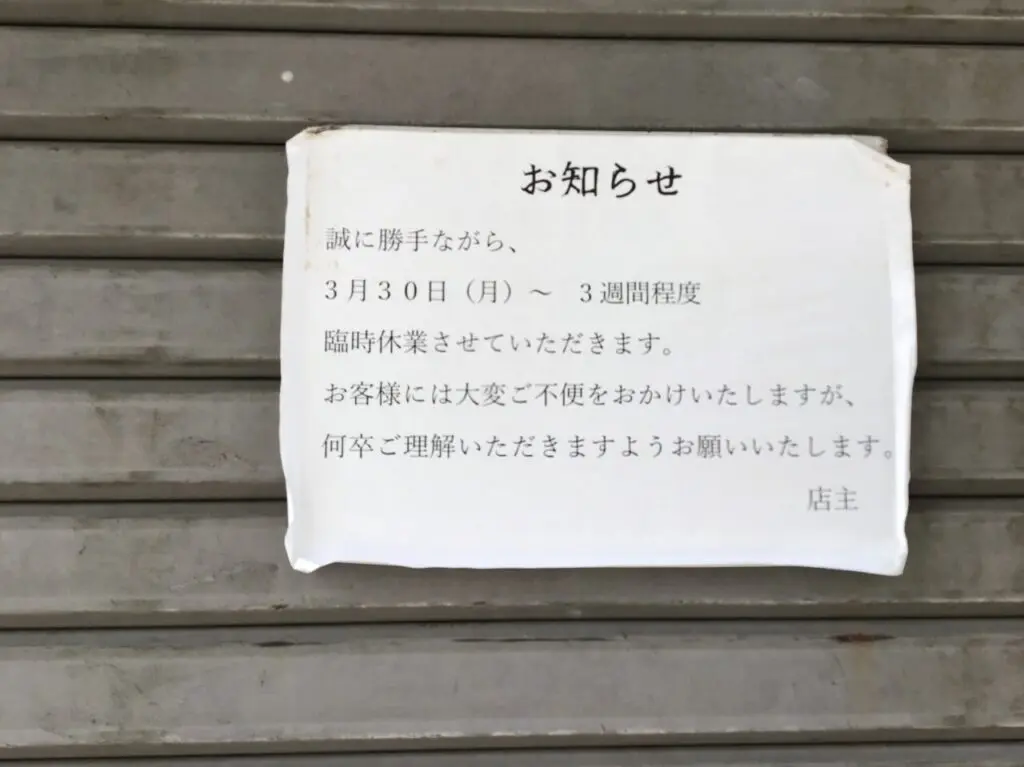 お知らせ
誠に勝手ながら、
３月３０日（月）～　３週間程度
臨時休業させていただきます。
お客様には大変ご不便をおかけいたしますが、
何卒ご理解いただきますようお願いいたします。
店主